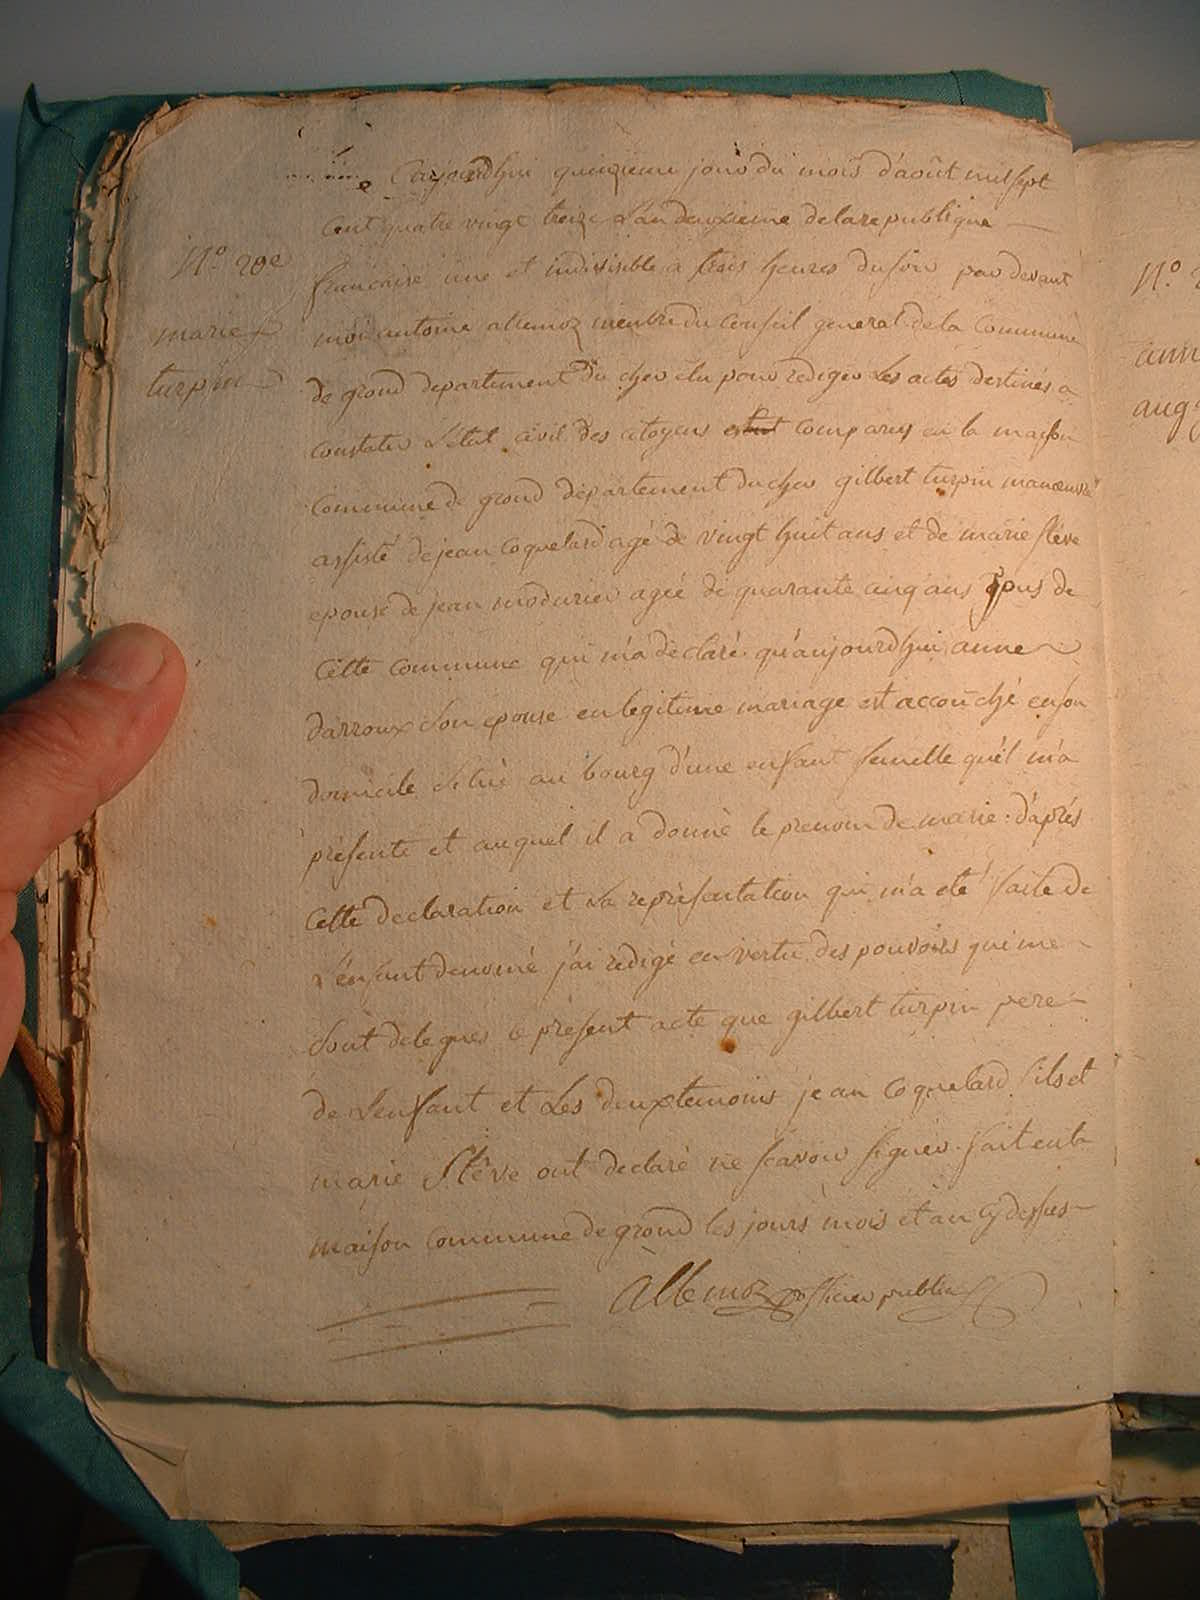 Cejourdhui quinzieme jour du mois d'août mil sept
cent quatre vingt treize L'an deuxieme de la republique
N.º 20e
francoise une et indivisible a trois heures du soir par devant
marie
moi antoine allemoz membre du Conseil general de la Commune
turpin
de grond departement du cher elu pour rediger Les actes destinés a
constater L'etat civil des citoyens est comparus en la maison
Commune de grond departement du cher gilbert turpin manoeuvre
assisté de jean Coquelard agé de vingt huit ans et de marie stêve
epouse de jean modurier agée de quarante cinq ans tous de
Cette Commune qui m'a declaré qu'aujourdhui anne
darroux Son epouse en legitime mariage est accouché en son
domicile Situé au bourg d'une enfant femelle qu'il m'a
présenté et auquel il a donné le prenom de marie: d'aprés
Cette declaration et La représentation qui m'a eté faite de
L'enfant denomé j'ai redigé en vertu des pouvoirs qui me
Sont delegues ce présent acte que gilbert turpin pere
de L'enfant et Les deux temoins jean Coquelard fils et
marie Stêve ont declaré ne scavoir signer. fait en la
maison Commune de grond les jours mois et an cy dessus
Allemoz officier public
N.º 2
ann
aug